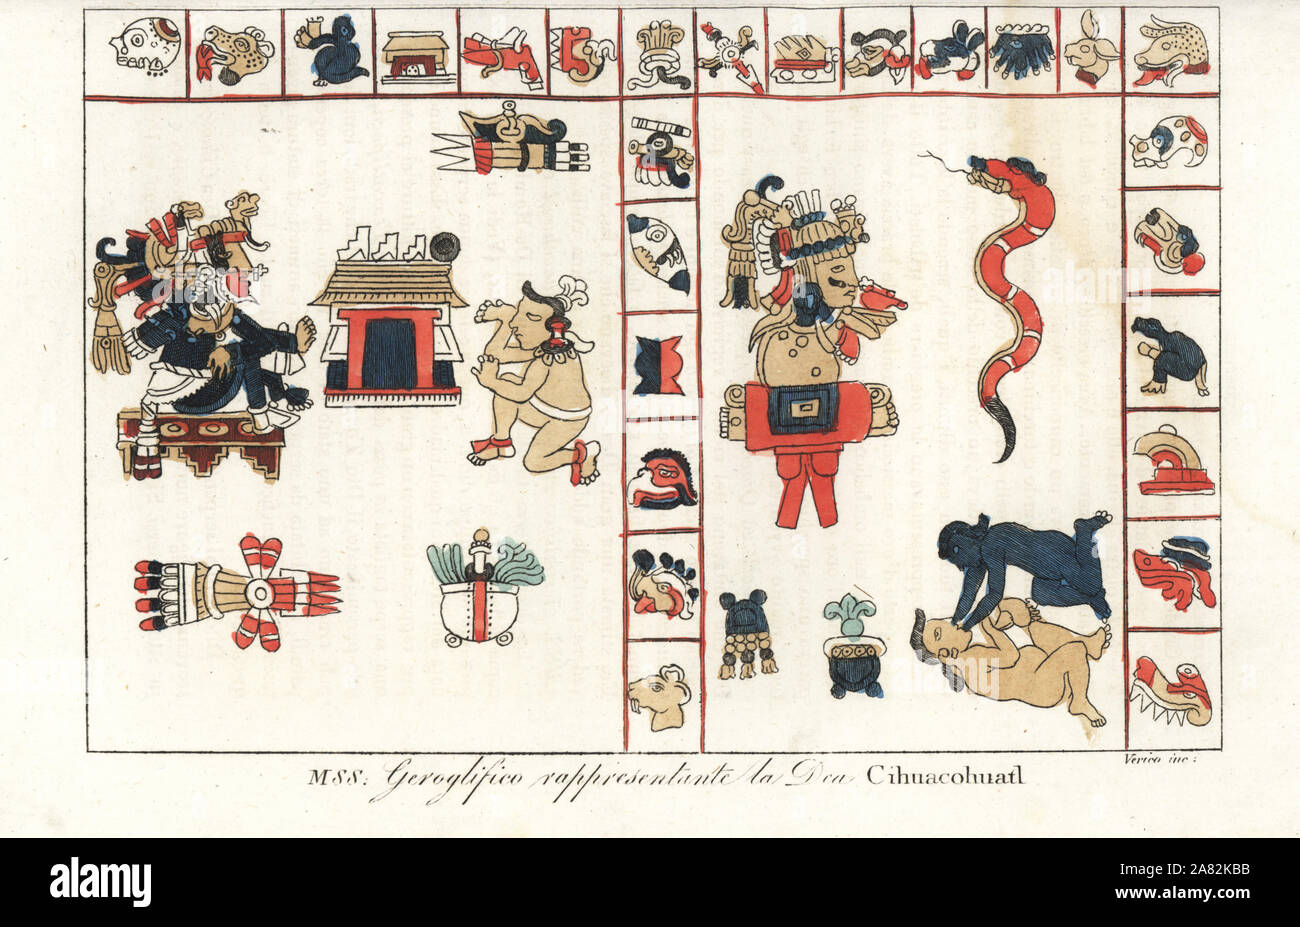 Verico inc:
MSS: Geroglifico rappresentante la Dea Cihuacohuatl
alamy
Image ID: 2A82KBB
www.alamy.com